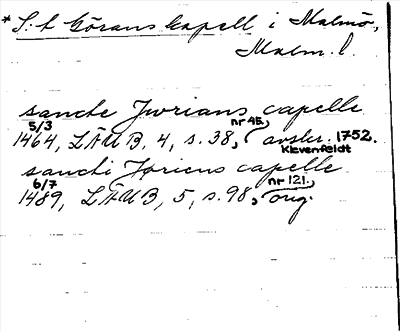 * S:t Görans kapell i Malmö,
Malm. l.
sancte Jwrians capelle
5/3 1464, LÄUB, 4, s. 38, nr 45, avskr. 1752. Klevenfeldt
sancti Joriens capelle
6/7 1489, LÄUB, 5, s. 98, nr 121, orig.